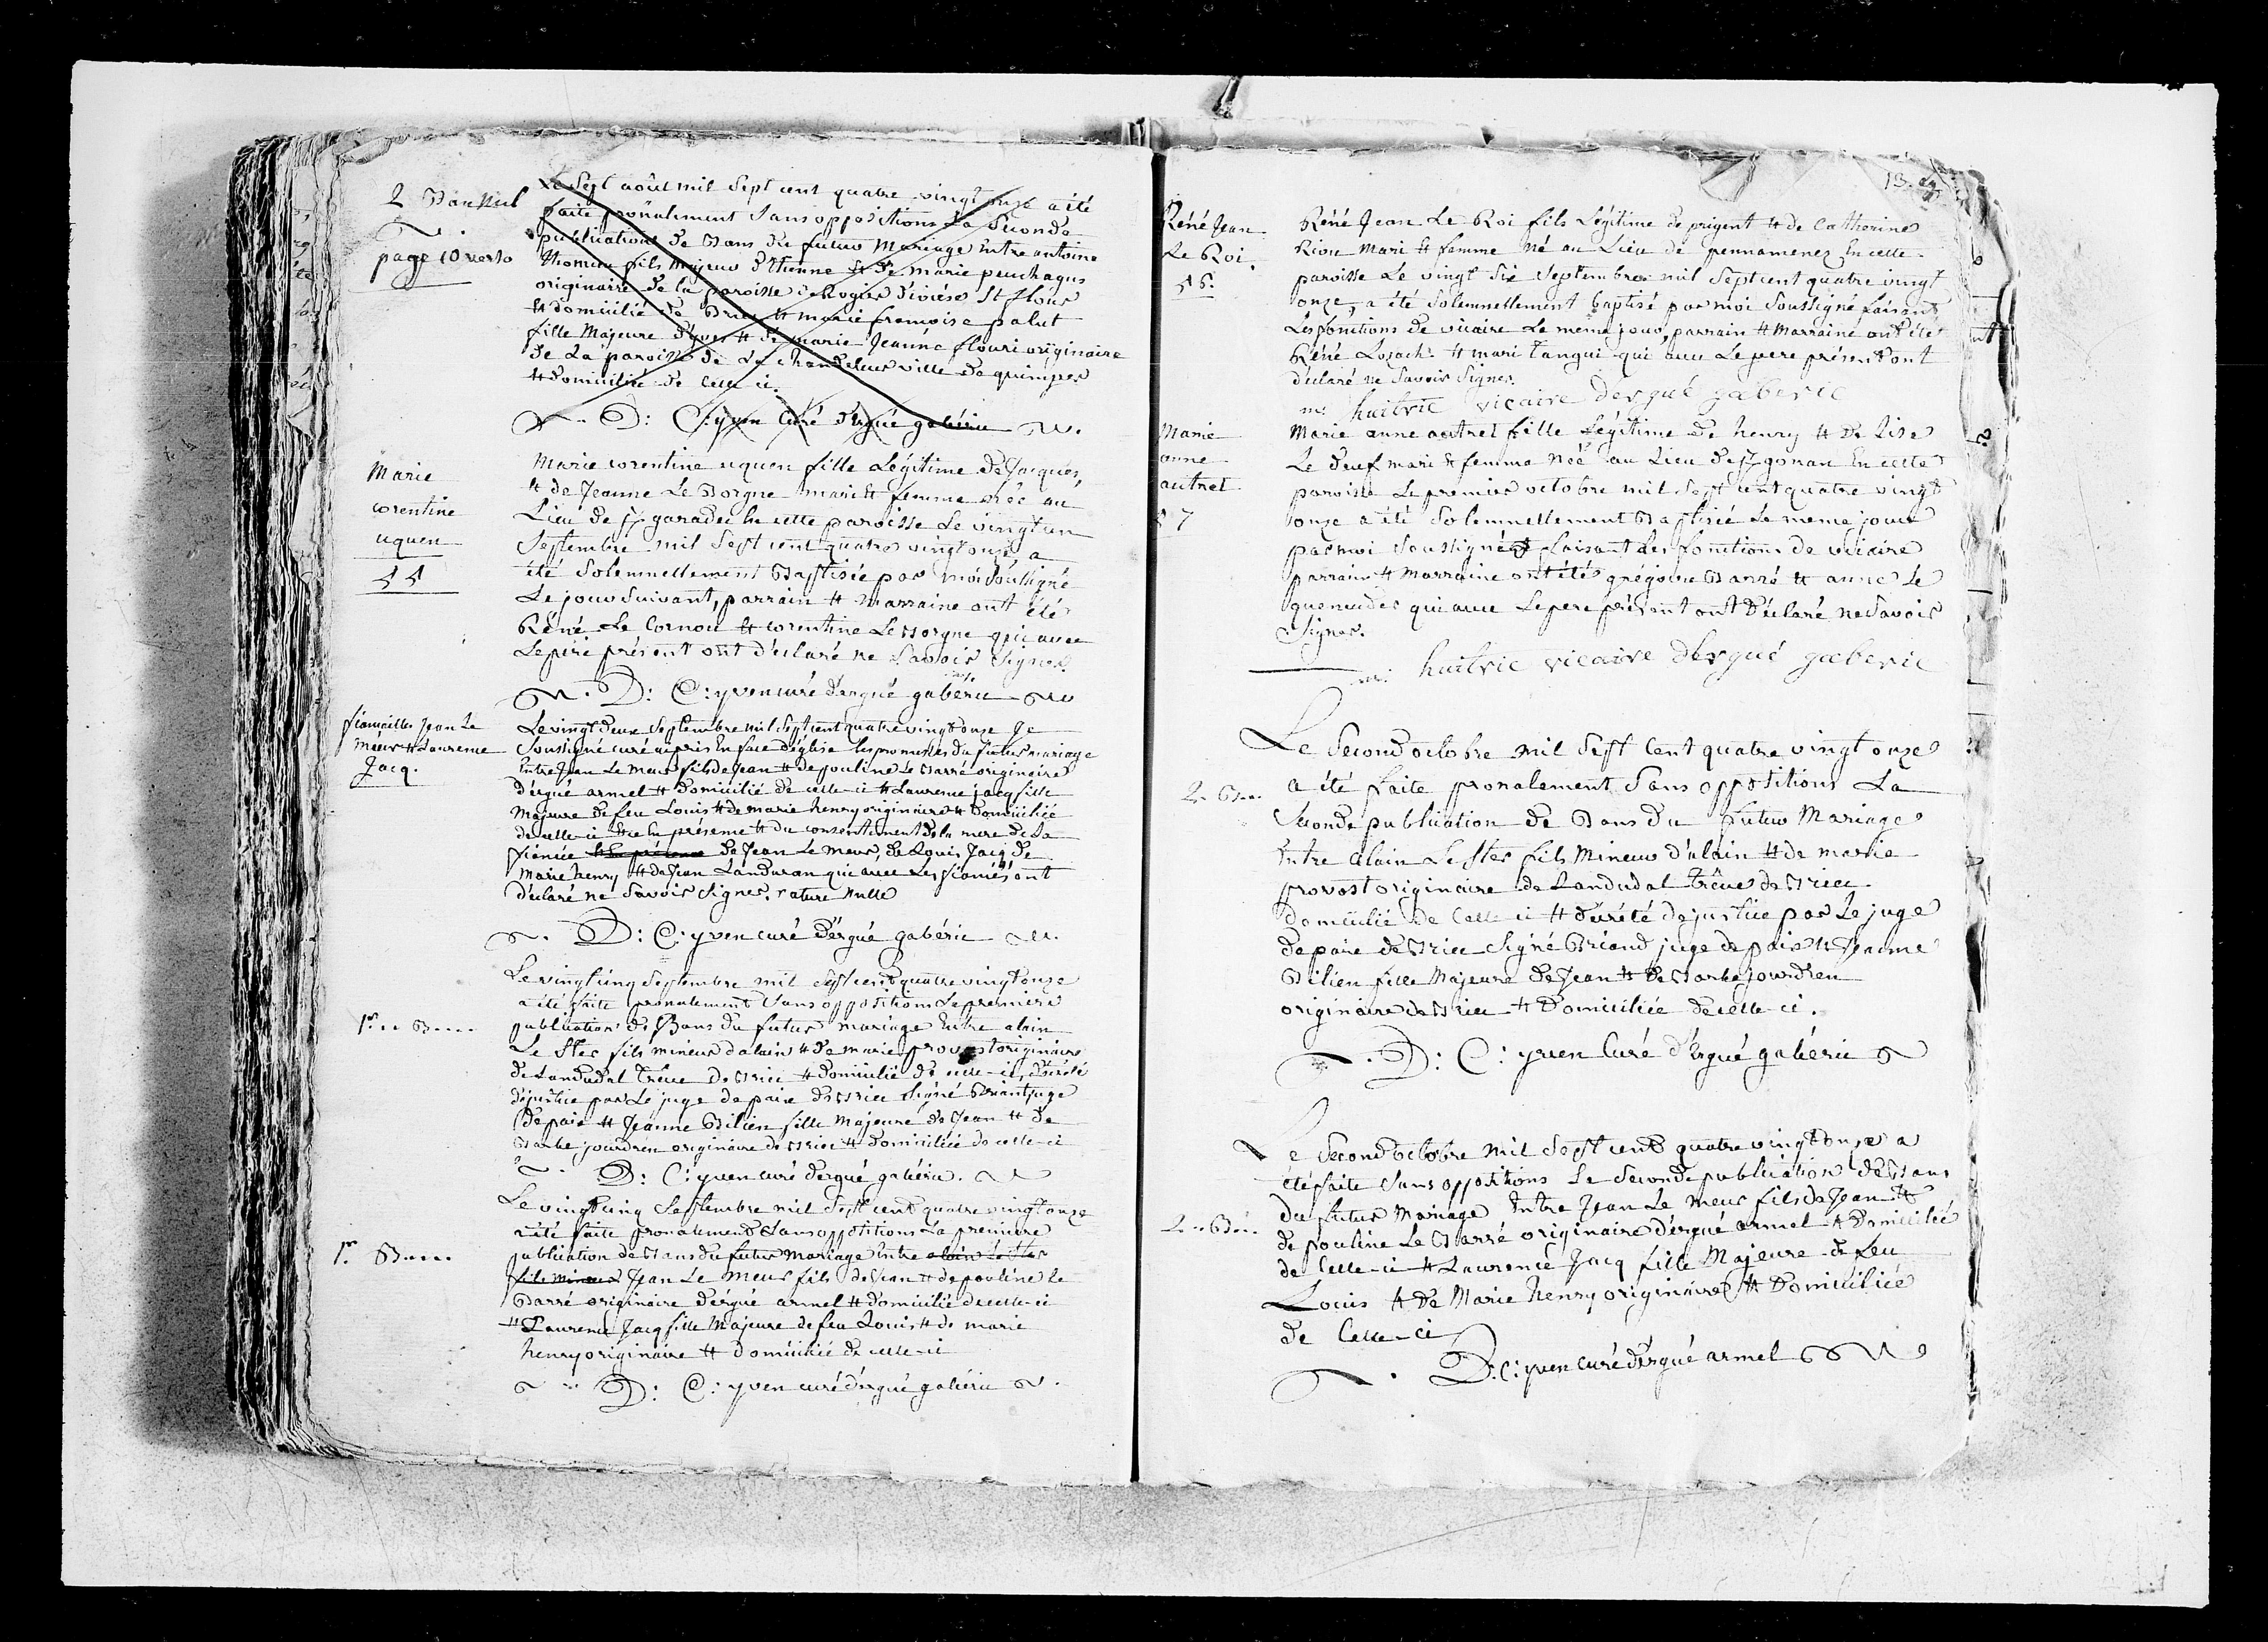 2 Ban Nul
page 10 verso
Le Sept août mil Sept cent quatre vingt onze a été
faite prônalement Sans oppositions La Seconde
publication de Bans du futur Mariage Entre antoine
fils Majeur d'Etienne et de marie penchagus
originaire de la paroisse de St flour
et domicilié de Briec et marie françoise palut
fille Majeure d'yves et de marie Jeanne flouri originaire
De La paroisse de La Chandeleur ville de quimper
et domiciliée de Celle ci.
D: C: yven Curé d'Ergué gabéric
Marie
corentine
uguen
55
Marie corentine uguen fille Légitime de Jacques,
et de Jeanne Le Borgne mari et femme née au
Lieu de En cette paroisse Le vingt un
Septembre mil Sept cent quatre vingt onze a
été Solemnellement Baptisée par moi Soussigné
Le jour Suivant, parrain et marraine ont été
René Le Cornou et corentine Le Borgne qui avec
Le pere présent ont déclaré ne Savoir Signer.
D: C: yven curé d'ergué gabéric
fiançailles Jean Le
Meur et Laurence
Jacq.
Le vingt deux Septembre mil Sept cent quatre vingt onze Je
Soussigné curé ai pris En face d'église Les promesses du futur mariage
Entre Jean Le Meur fils de Jean et de pouline Le Barré originaire
d'ergué armel et domicilié de celle-ci et Laurence jacq fille
Majeure de feu Louis et de marie henry originaire et Domiciliée
de celle-ci En présence et du consentement de la mere de La
fiancée et En présence de Jean Le Meur, de Louis Jacq de
Marie henry et de Jean Landuran qui avec Les fiancés ont
déclaré ne Savoir Signer. rature Nulle
D: C: yven curé d'Ergué gabéric
1r.. B....
Le vingt cinq Septembre mil Sept cent quatre vingt onze
a été faite prônalement Sans oppositions La premiere
publication de Bans du futur mariage Entre alain
Le Ster fils mineur d'alain et de marie provost originaire
de Landudal Trêve De Briec et domicilié de celle-ci, décrété
de justice par Le juge de paix de Briec Signé Briant juge
De paix et Jeanne Bilien fille Majeure de Jean et de
Barbe jourdren originaire de Briec et Domiciliée de celle-ci
D: C: yven curé d'ergué gabéric.
1r. B....
Le vingt cinq Septembre mil Sept cent quatre vingt onze
a été faite prônalement Sans oppositions La premiere
publication de Bans du futur mariage Entre alain Le Ster
fils mineur Jean Le Meur fils de Jean et de pouline Le
Barré originaire d'ergué armel et domicilié de celle-ci
et Laurence Jacq fille Majeure de feu Louis et de marie
henry originaire et domiciliée de celle-ci
D: C: yven curé d'ergué gabéric
13.
René Jean
Le Roi.
56.
Réné Jean Le Roi fils Légitime de prigent et de Catherine
Riou Mari et femme Né au Lieu de pennamenez En cette
paroisse Le vingt Six Septembre mil Sept cent quatre vingt
onze, a été Solemnellement baptisé par moi Soussigné faisant
Les fonctions de vicaire Le même jour, parrain et Marraine ont été
Réné Lozach et mari Tangui qui avec Le pere présent ont
déclaré ne Savoir Signer.
huitric vicaire dergué gaberic
Marie
anne
autret
57
Marie anne autret fille Légitime de henry et de Lise
Le Beuf mari et femme Née au Lieu de En cette
paroisse Le premier octobre mil Sept cent quatre vingt
onze a été Solemnellement Baptisée Le même jour
par moi Soussigné faisant Les fonctions de vicaire
parrain et Marraine ont été grégoire Barré et anne Le
qui avec Le pere présent ont déclaré ne Savoir
Signer.
huitric vicaire dergué gaberic
2.. B...
Le Second octobre mil Sept Cent quatre vingt onze
a été faite pronalement Sans oppositions La
Seconde publication de Bans du futur Mariage
Entre alain Le Ster fils Mineur d'alain et de marie
provost originaire de Landudal Trêve de Briec
Domicilié de Celle ci et décrété de justice par Le juge
de paix de Briec Signé Briand juge de paix et Jeanne
Bilien fille Majeure de Jean et de Barbe jourdren
originaire de Briec et Domiciliée de celle-ci.
D: C: yven Curé d'Ergué gabéric
2.. B...
Le Second octobre mil Sept cent quatre vingt onze a
été faite Sans oppositions La Seconde publication de Bans
du futur Mariage Entre Jean Le Meur fils de Jean et
de pouline Le Barré originaire d'ergué armel et Domicilié
de Celle-ci et Laurence Jacq fille Majeure de feu
Louis et de Marie henry originaire et Domiciliée
de Celle-ci
D: C: yven curé d'ergué armel